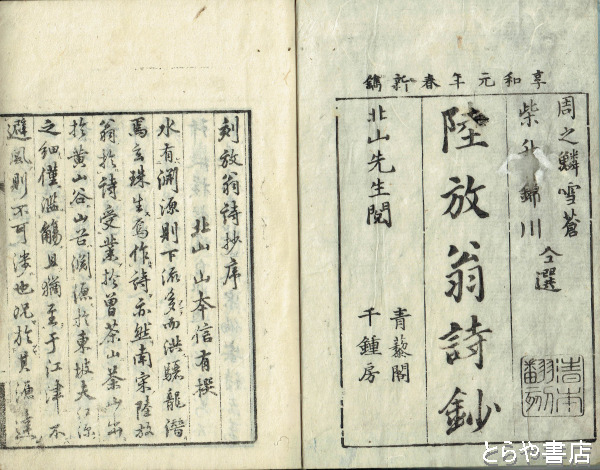 享和元年春新鐫
周之麟雪蒼
柴升錦川
仝選
陸放翁詩鈔
北山先生閲
青藜閣
千鍾房
刻放翁詩抄序
北山山本信有撰
水有淵源則下流多而洪驪龍潛
焉玄珠生焉作詩亦然南宋陸放
翁於詩受業於曾茶山茶山出
於黄山谷山谷淵源於東坡夫江源
之細僅濫觴且猶至于江津不
避風則不可渉也況於其源
とらや書店